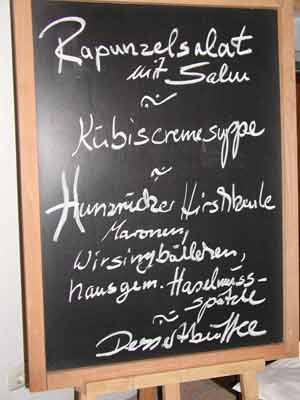 Rapunzelsalat
mit Salm
~
Kübiscremesuppe
~
Hunsrücker Hirschkeule
Maronen,
Wirsingbällchen,
hausgem. Haselnuss-
spätzle
~
Dessertbüffee